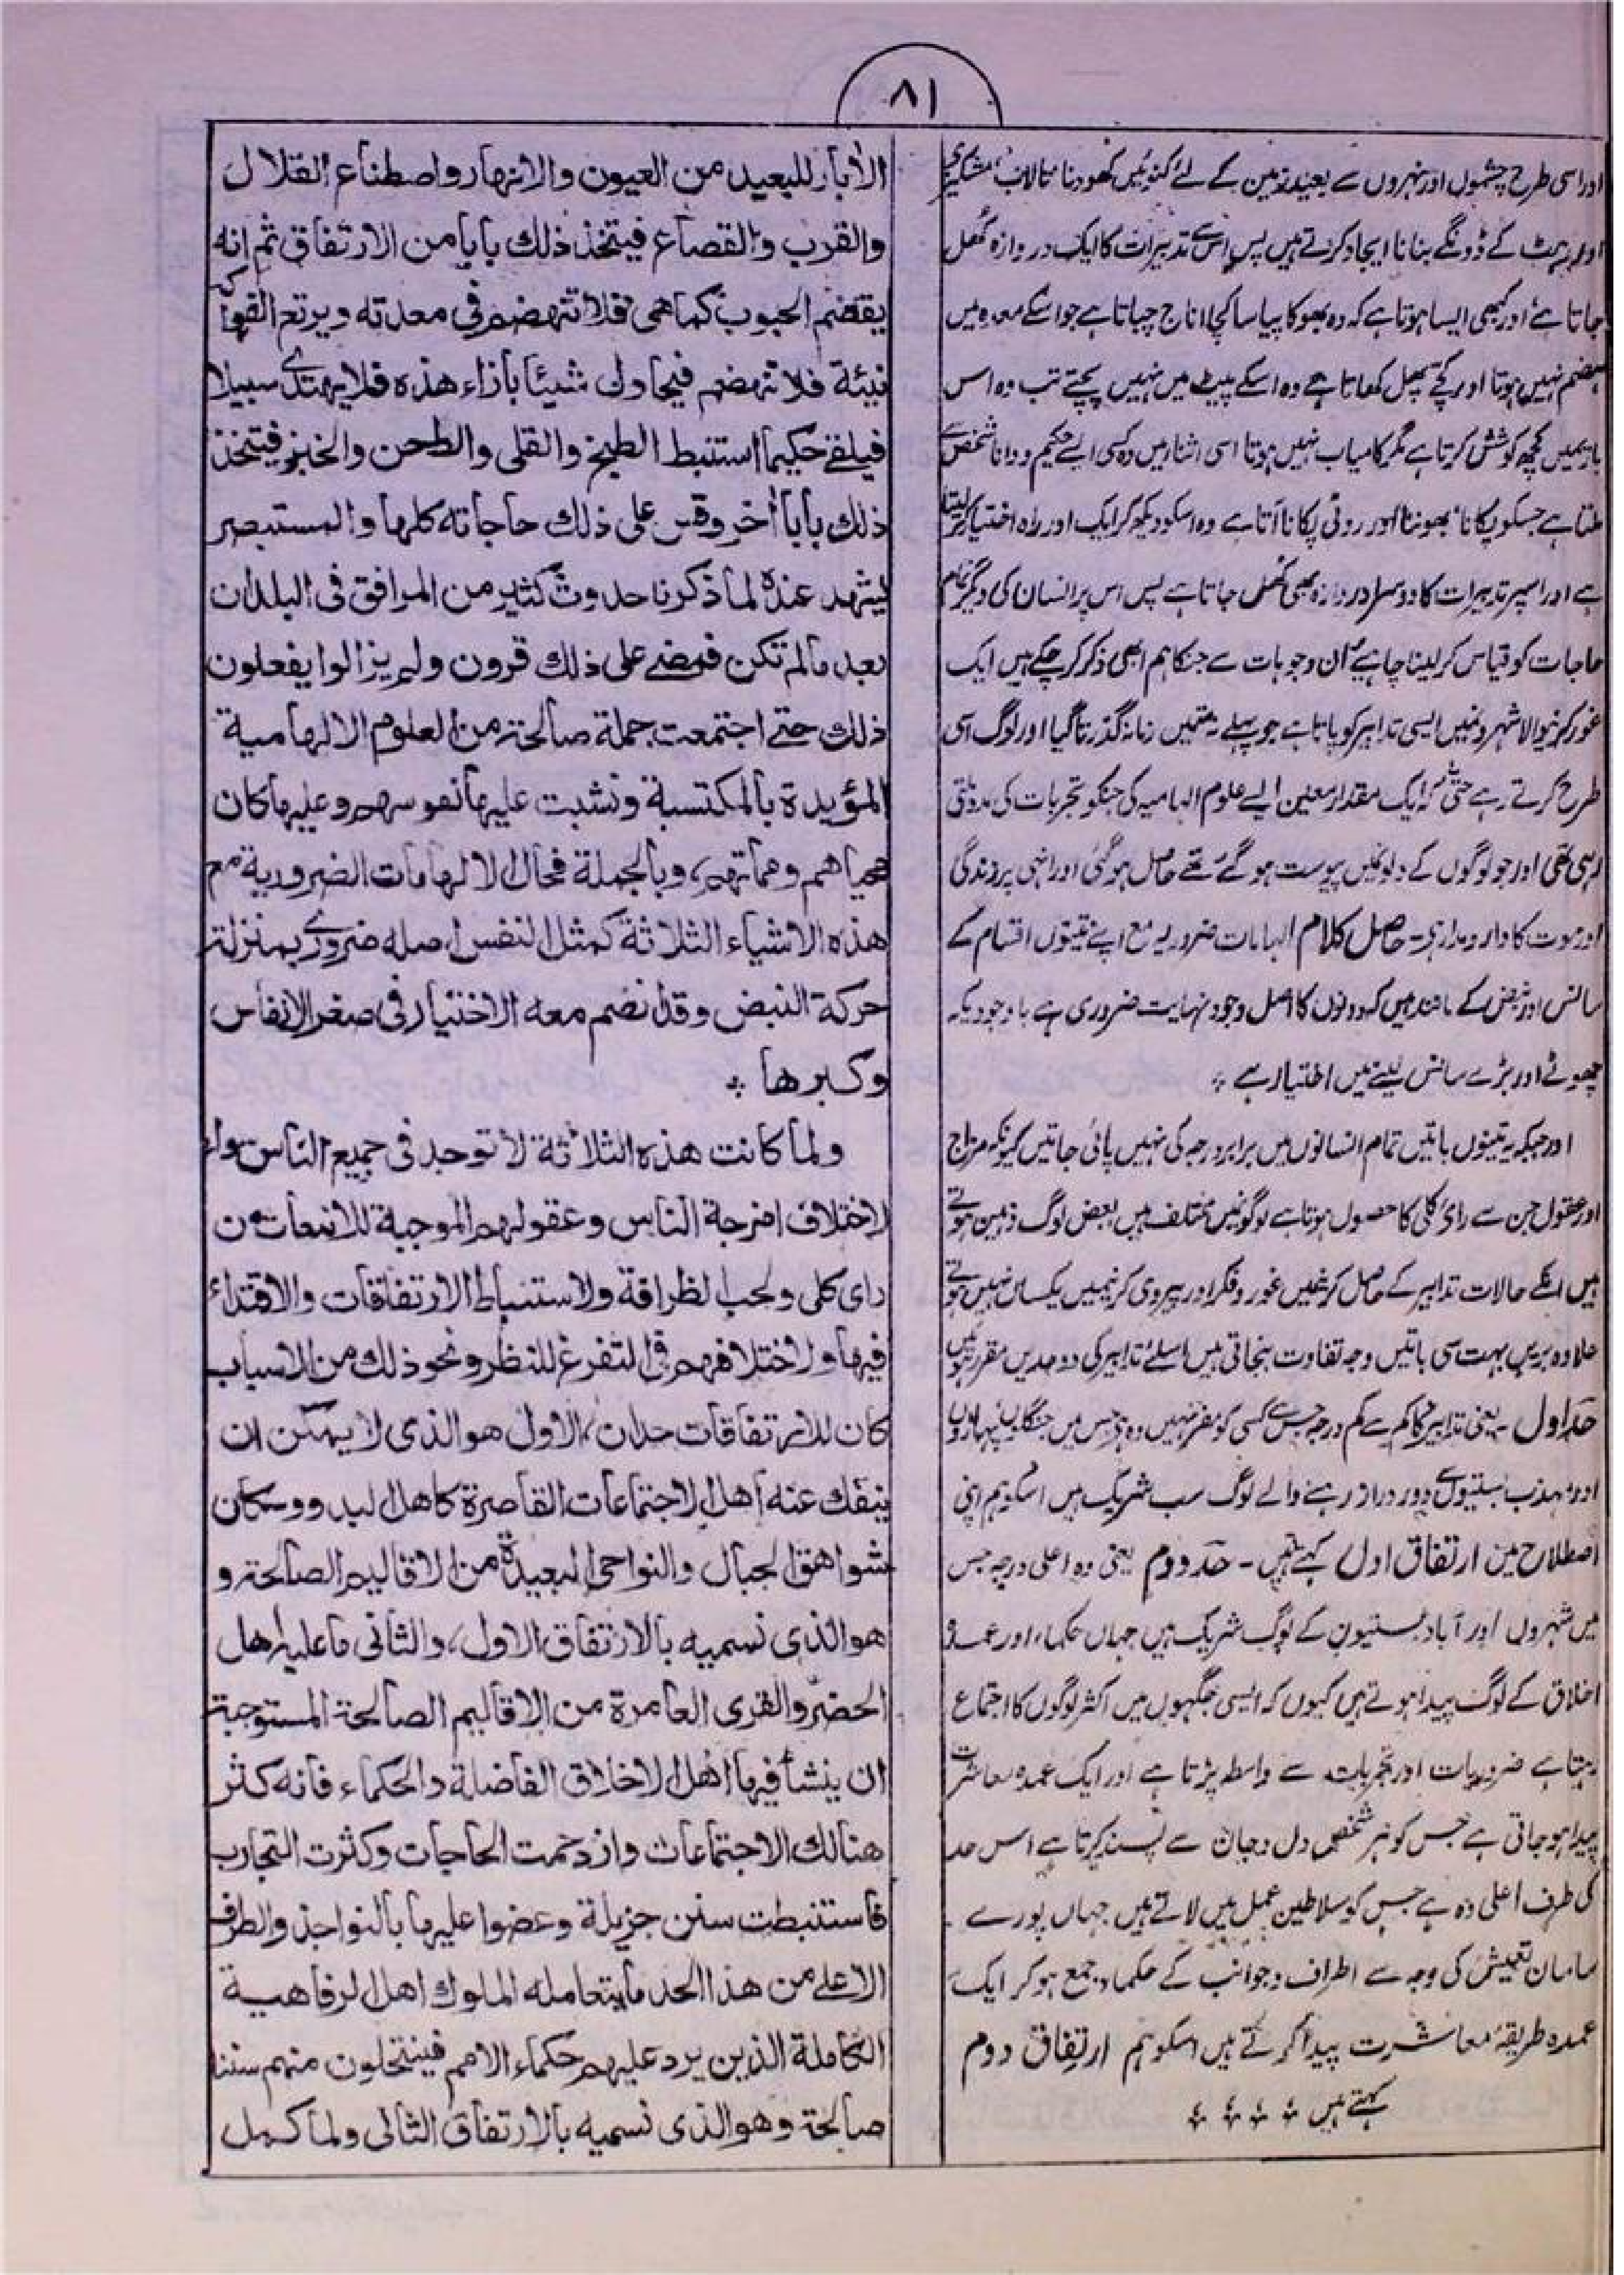 ۸۱
اور اسی طرح چشموں اور نہروں سے بعید زمین کے لئے کنوئیں کھودنا تالاب مشکیزے
اور پٹ کے ڈونگے بنانا ایجاد کرتے ہیں پس اس سے تدبیرات کا ایک دروازہ کُھل
جاتا ہے اور کبھی ایسا ہوتا ہے کہ وہ بھوکا پیاسا کچا اناج چباتا ہے جو اسکے معدہ میں
ہضم نہیں ہوتا اور کچے پھل کھاتا ہے وہ اسکے پیٹ میں نہیں پچتے تب وہ اس
بارہمیں کچھ کوشش کرتا ہے مگر کامیاب نہیں ہوتا اسی اثنا میں وہ کسی ایسے حکیم و دانا شخص سے
ملتا ہے جسکو پکانا بھوننا اور روٹی پکانا آتا ہے وہ اسکو دیکھ کر ایک اور راہ اختیار کر لیتا
ہے اور اسپر تدبیرات کا دوسرا دروازہ بھی کُھل جاتا ہے پس اس پر انسان کی دیگر تمام
حاجات کو قیاس کر لینا چاہیے اُن وجوہات سے جنکا ہم ابھی ذکر کر چکے ہیں ایک
غور کرنیوالا شہروں میں ایسی تدابیر کو پاتا ہے جو پہلے نہ تھیں زمانہ گذرتا گیا اور لوگ اسی
طرح کرتے رہے حتیٰ کہ ایک مقدار معین ایسے علوم الہامیہ کی جنکو تجربات کی مدد ملتی
رہی تھی اور جو لوگوں کے دلوں میں پیوست ہو گئے تھے حاصل ہو گئی اور انہی پر زندگی
اور موت کا دار و مدار ہے۔ حاصل کلام الہامات ضروریہ مع اپنے تینوں اقسام کے
سانس اور نبض کے مانند ہیں کہ دونوں کا اصل وجود نہایت ضروری ہے باوجودیکہ
چھوٹے اور بڑے سانس لینے میں اختیار ہے ؞
اور جبکہ یہ تینوں باتیں تمام انسانوں میں برابر درجہ کی نہیں پائی جاتیں کیونکہ مزاج
اور عقول جن سے رای کلی کا حصول ہوتا ہے لوگونمیں مختلف ہیں بعض لوگ ذہین ہوتے
ہیں انکے حالات تدابیر کے حاصل کرنیمیں غور و فکر اور پیروی کرنیمیں یکساں نہیں ہوتے
علاوہ بریں بہت سی باتیں وجہ تفاوت بنجاتی ہیں اسلئے تدابیر کی دو حدیں مقرر ہوئیں
حد اول۔ یعنی تدابیر کا کم سے کم درجہ جس سے کسی کو مفر نہیں وہ ہے جس میں جنگلوں پہاڑوں
اور مہذب بستیوں سے دور دراز رہنے والے لوگ سب شریک ہیں اسکو ہم اپنی
اصطلاح میں ارتفاق اول کہتے ہیں۔ حد دوم یعنی وہ اعلی درجہ جس
میں شہروں اور آباد بستیوں کے لوگ شریک ہیں جہاں حکماء اور عمدہ
اخلاق کے لوگ پیدا ہوتے ہیں کیوں کہ ایسی جگہوں میں اکثر لوگوں کا اجتماع
رہتا ہے ضروریات اور تجربات سے واسطہ پڑتا ہے اور ایک عمدہ معاشرت
پیدا ہو جاتی ہے جس کو ہر شخص دل و جان سے پسند کرتا ہے اس حد
کی طرف اعلی وہ ہے جس کو سلاطین عمل میں لاتے ہیں جہاں پورے
سامان تعیش کی وجہ سے اطراف و جوانب کے حکماء جمع ہو کر ایک
عمدہ طریقۂ معاشرت پیدا کرتے ہیں اسکو ہم ارتفاق دوم
کہتے ہیں ؞ ؞ ؞ ؞
الآبار للبعيد من العيون والانهار واصطناع القلال
والقرب والقصاع فيتخذ ذلك بابا من الارتفاق ثم انه
يقتضم الحبوب كما هى فلا تنهضم فى معدته ويرتع الفواكه
نيئة فلا تنهضم فيحاول شيئا بازاء هذه فلا يهتدے سبيلا
فيلقے حكيما استنبط الطبخ والقلى والطحن والخبز فيتخذ
ذلك بابا أخر وقس على ذلك حاجاته كلها والمستبصر
يشهد عنده لما ذكرنا حدوث كثير من المرافق فى البلدان
بعد مالم تكن فمضے على ذلك قرون ولم يزالوا يفعلون
ذلك حتے اجتمعت جملة صالحة من العلوم الالهامية
المؤيدة بالمكتسبة ونشبت عليها نفوسهم وعليها كان
محياهم ومماتهم، وبالجملة فحال الالهامات الضرورية مع
هذه الاشياء الثلاثة كمثل النفس اصله ضرورے بمنزلة
حركة النبض وقد انضم معه الاختيار فى صغر الانفاس
وكبرها ؞
ولما كانت هذه الثلاثة لا توجد فى جميع الناس سواء
لاختلاف امزجة الناس وعقولهم الموجبة للانبعاث من
راى كلى ولحب الظرافة ولاستنباط الارتفاقات والاقتداء
فيها ولاختلافهم فى التفرغ للنظر ونحو ذلك من الاسباب
كان للارتفاقات حدان، الاول هو الذى لا يمكن ان
ينفك عنه أهل الاجتماعات القاصرة كاهل البدو وسكان
شواهق الجبال والنواحى البعيدة من الاقاليم الصالحة و
هو الذى نسميه بالارتفاق الاول، والثانى ما عليه أهل
الحضر والقرى العامرة من الاقاليم الصالحة المستوجبة
ان ينشأ فيها اهل الاخلاق الفاضلة والحكماء فانه كثر
هنالك الاجتماعات وازدحمت الحاجات وكثرت التجارب
فاستنبطت سنن جزيلة وعضوا عليها بالنواجذ والطرف
الاعلے من هذا الحد ما يتعامله الملوك اهل الرفاهية
الكاملة الذين يرد عليهم حكماء الامم فينتحلون منهم سننا
صالحة وهو الذى نسميه بالارتفاق الثانى ولما كمل